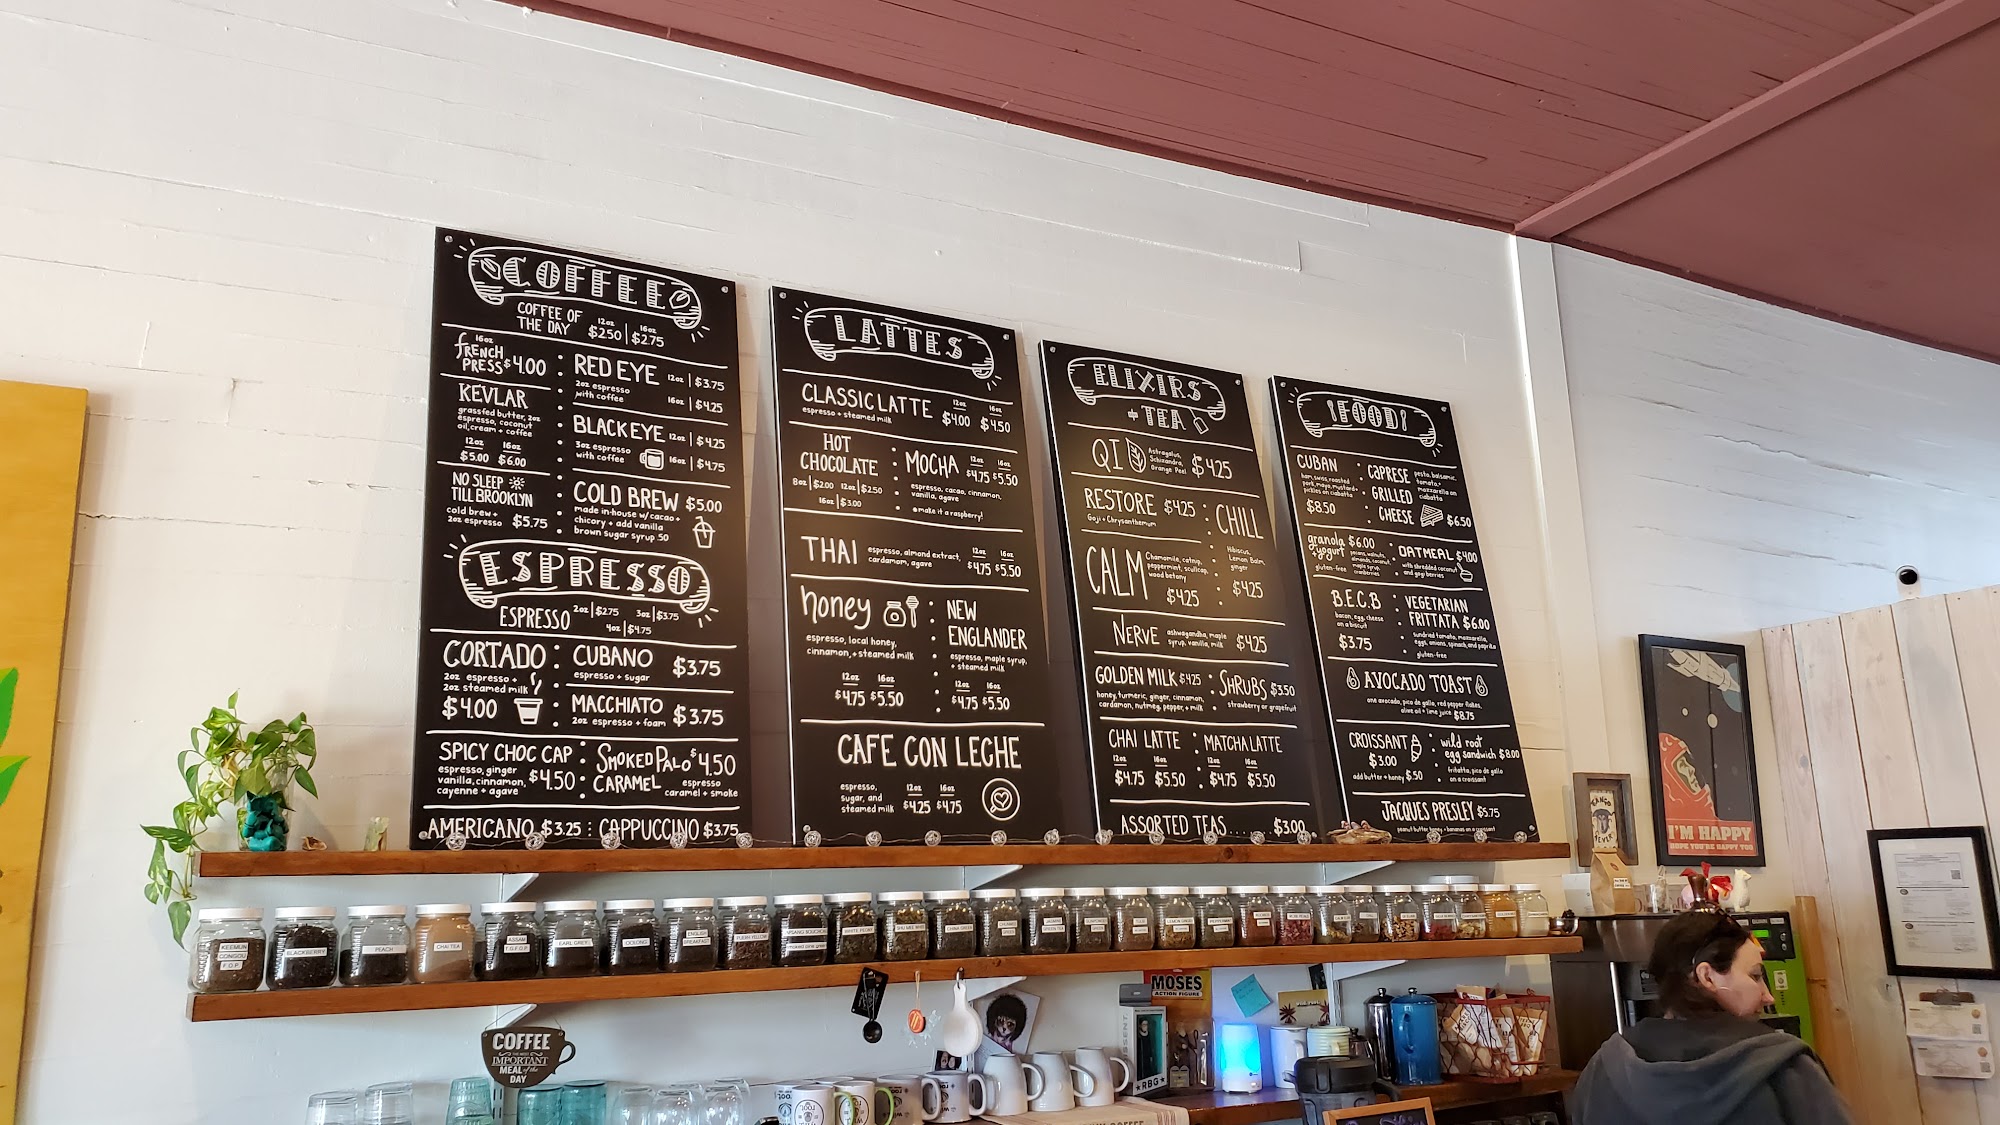 COFFEE
COFFEE OF THE DAY 12oz $2.50 | 16oz $2.75
16oz
FRENCH PRESS $4.00
KEVLAR
grassfed butter, 2oz
espresso, coconut
oil, cream + coffee
12oz 16oz
$5.00 $6.00
NO SLEEP
TILL BROOKLYN
cold brew +
2oz espresso $5.75
RED EYE 12oz | $3.75
2oz espresso
with coffee 16oz | $4.25
BLACK EYE 12oz | $4.25
3oz espresso
with coffee 16oz | $4.75
COLD BREW $5.00
made in-house w/ cacao +
chicory + add vanilla
brown sugar syrup .50
ESPRESSO
ESPRESSO 2oz | $2.75 3oz | $3.75
4oz | $4.75
CORTADO
2oz espresso +
2oz steamed milk
$4.00
CUBANO $3.75
espresso + sugar
MACCHIATO $3.75
2oz espresso + foam
SPICY CHOC CAP
espresso, ginger
vanilla, cinnamon,
cayenne + agave
$4.50
SMOKED PALO $4.50
CARAMEL espresso
caramel + smoke
AMERICANO $3.25 : CAPPUCCINO $3.75
LATTES
CLASSIC LATTE 12oz 16oz
espresso + steamed milk $4.00 $4.50
HOT
CHOCOLATE
8oz | $2.00 12oz | $2.50
16oz | $3.00
MOCHA 12oz 16oz
$4.75 $5.50
espresso, cacao, cinnamon,
vanilla, agave
make it a raspberry!
THAI espresso, almond extract,
cardamom, agave
12oz 16oz
$4.75 $5.50
honey
espresso, local honey,
cinnamon, + steamed milk
12oz 16oz
$4.75 $5.50
NEW
ENGLANDER
espresso, maple syrup,
+ steamed milk
12oz 16oz
$4.75 $5.50
CAFE CON LECHE
espresso,
sugar, and
steamed milk
12oz 16oz
$4.25 $4.75
ELIXIRS
+ TEA
QI Astragalus,
Schizandra,
Orange Peel
$4.25
RESTORE $4.25
Goji + Chrysanthemum
CHILL
Hibiscus,
Lemon Balm,
ginger
$4.25
CALM
Chamomile, catnip,
peppermint, scullcap,
wood betony
$4.25
NERVE ashwagandha, maple
syrup, vanilla, milk
$4.25
GOLDEN MILK $4.25
honey, turmeric, ginger, cinnamon,
cardamom, nutmeg, pepper, + milk
SHRUBS $3.50
strawberry or grapefruit
CHAI LATTE
12oz 16oz
$4.75 $5.50
MATCHA LATTE
12oz 16oz
$4.75 $5.50
ASSORTED TEAS...... $3.00
¡FOOD!
CUBAN
ham, swiss, roasted
pork, mayo, mustard +
pickles on ciabatta
$8.50
CAPRESE
GRILLED
CHEESE
pesto, balsamic,
tomato +
mozzarella on
ciabatta
$6.50
granola $6.00
+ yogurt
pecans, walnuts,
almonds, coconut,
maple syrup,
cranberries
gluten-free
OATMEAL $4.00
with shredded coconut
and gogi berries
B.E.C.B
bacon, egg, cheese
on a biscuit
$3.75
VEGETARIAN
FRITTATA $6.00
sundried tomato, mozzarella,
eggs, onions, spinach, and paprika
gluten-free
AVOCADO TOAST
one avocado, pico de gallo, red pepper flakes,
olive oil + lime juice $8.75
CROISSANT
$3.00
add butter + honey $.50
wild root
egg sandwich $8.00
frittata, pico de gallo
on a croissant
JACQUES PRESLEY $5.75
peanut butter honey + bananas on a croissant
KEEMUN
CONGOU
F.O.P.
BLACKBERRY
PEACH
CHAI TEA
ASSAM
T.G.F.O.P.
EARL GREY
OOLONG
ENGLISH
BREAKFAST
WHITE PEONY
I'M HAPPY
HOPE YOU'RE HAPPY TOO
MOSES
ACTION FIGURE
COFFEE
THE MOST
IMPORTANT
MEAL of the
DAY
RBG